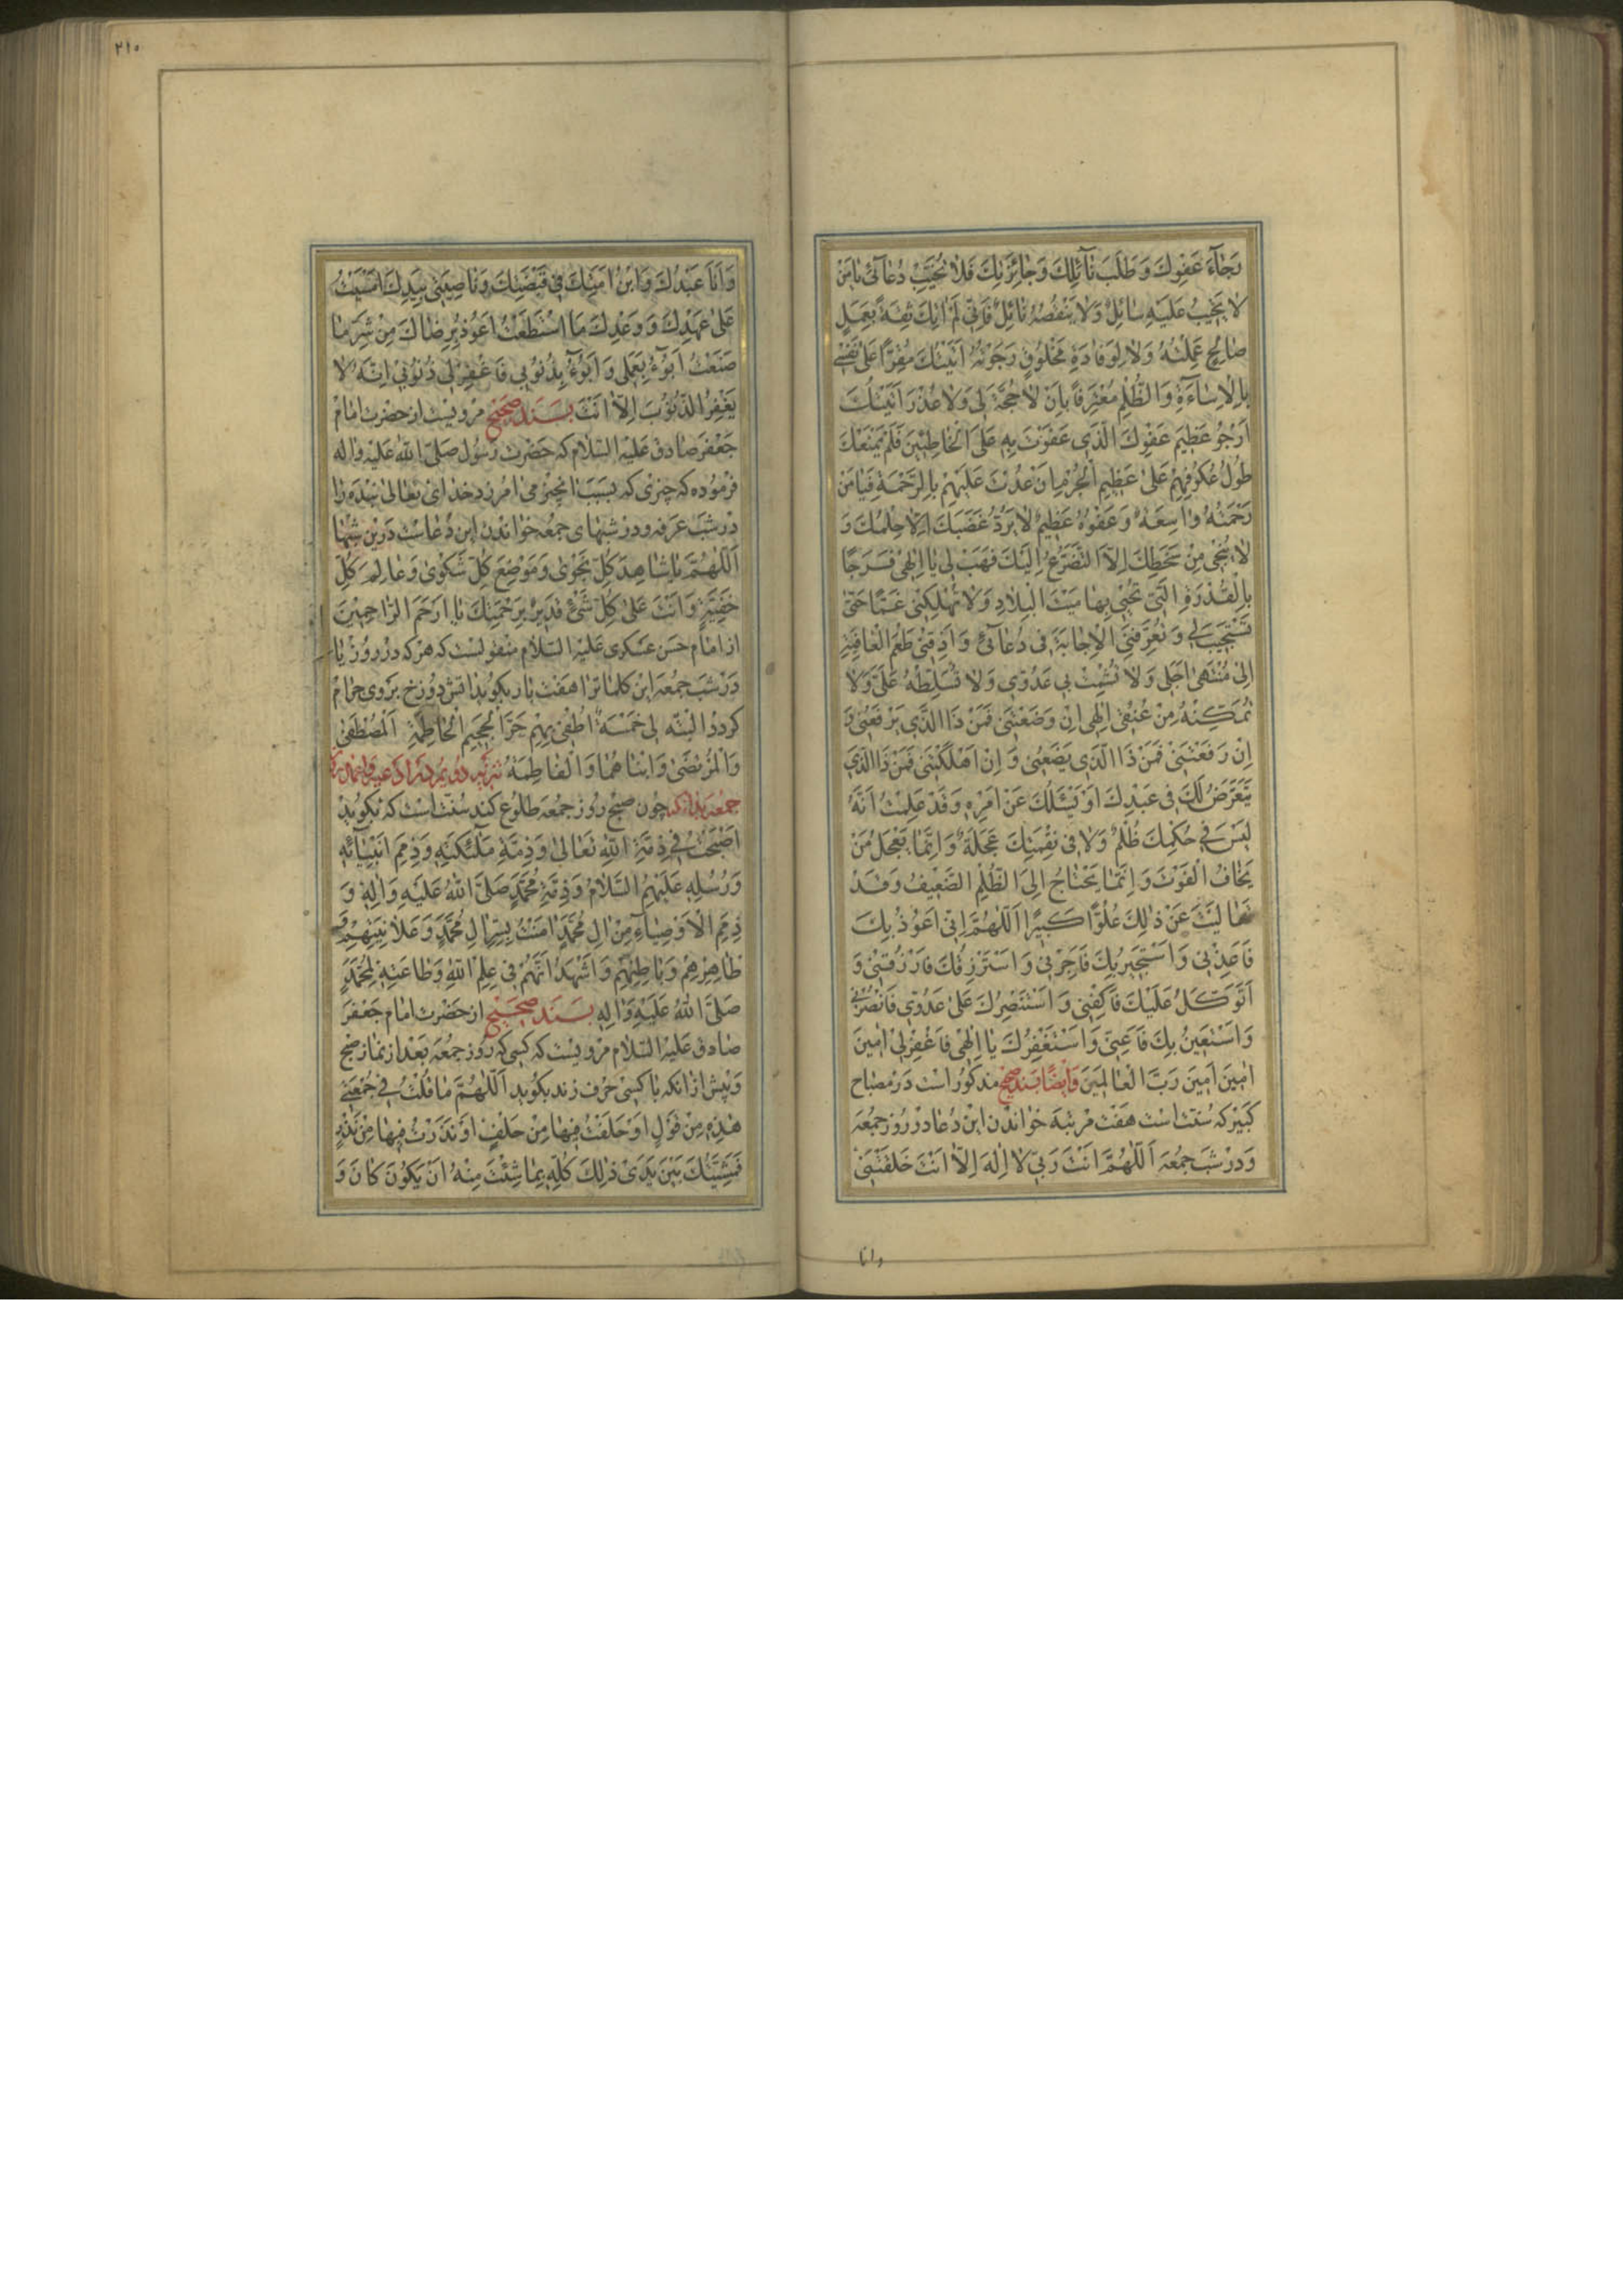 رَجَآءَ عَفْوِكَ وَ طَلَبَ نَآئِلِكَ وَ جَائِزَتِكَ فَلَا تُخَيِّبْ دُعَآئِى يَا مَنْ
لَا يَخِيبُ عَلَيْهِ سَائِلٌ وَلَا يَنْقُصُهُ نَائِلٌ فَاِنّى لَمْ اٰتِكَ ثِقَةً بِعَمَلٍ
صَالِحٍ عَمِلْتُهُ وَلَا لِوِفَادَةِ مَخْلُوقٍ رَجَوْتُهُ اَتَيْتُكَ مُقِرًّا عَلىٰ نَفْسى
بِالْاِسَآءَةِ وَ الظُّلْمِ مُعْتَرِفًا بِاَنْ لَا حُجَّةَ لى وَلَا عُذْرَ اَتَيْتُكَ
اَرْجُو عَظِيمَ عَفْوِكَ الَّذى عَفَوْتَ بِهِ عَلَى الْخَاطِئِينَ فَلَمْ يَمْنَعْكَ
طُولُ عُكُوفِهِمْ عَلىٰ عَظِيمِ الْجُرْمِ اَنْ عُدْتَ عَلَيْهِمْ بِالرَّحْمَةِ فَيَا مَنْ
رَحْمَتُهُ وَاسِعَةٌ وَ عَفْوُهُ عَظِيمٌ لَا يَرُدُّ غَضَبَكَ اِلَّا حِلْمُكَ وَ
لَا يُنْجى مِنْ سَخَطِكَ اِلَّا التَّضَرُّعُ اِلَيْكَ فَهَبْ لى يَا اِلٰهى فَرَجًا
بِالْقُدْرَةِ الَّتى تُحْيى بِهَا مَيْتَ الْبِلَادِ وَلَا تُهْلِكْنى غَمًّا حَتّىٰ
تَسْتَجِيبَ لى وَ تُعَرِّفَنِى الْاِجَابَةَ فى دُعَآئى وَ اَذِقْنى طَعْمَ الْعَافِيَةِ
اِلىٰ مُنْتَهىٰ اَجَلى وَلَا تُشْمِتْ بى عَدُوّى وَلَا تُسَلِّطْهُ عَلَىَّ وَلَا
تُمَكِّنْهُ مِنْ عُنُقى اِلٰهى اِنْ وَضَعْتَنى فَمَنْ ذَا الَّذى يَرْفَعُنى وَ
اِنْ رَفَعْتَنى فَمَنْ ذَا الَّذى يَضَعُنى وَ اِنْ اَهْلَكْتَنى فَمَنْ ذَا الَّذى
يَتَعَرَّضُ لَكَ فى عَبْدِكَ اَوْ يَسْئَلُكَ عَنْ اَمْرِهِ وَ قَدْ عَلِمْتُ اَنَّهُ
لَيْسَ فى حُكْمِكَ ظُلْمٌ وَلَا فى نَقِمَتِكَ عَجَلَةٌ وَ اِنَّمَا يَعْجَلُ مَنْ
يَخَافُ الْفَوْتَ وَ اِنَّمَا يَحْتَاجُ اِلَى الظُّلْمِ الضَّعِيفُ وَ قَدْ
تَعَالَيْتَ عَنْ ذٰلِكَ عُلُوًّا كَبِيرًا اَللّٰهُمَّ اِنّى اَعُوذُ بِكَ
فَاَعِذْنى وَ اَسْتَجِيرُ بِكَ فَاَجِرْنى وَ اَسْتَرْزِقُكَ فَارْزُقْنى وَ
اَتَوَكَّلُ عَلَيْكَ فَاكْفِنى وَ اَسْتَنْصِرُكَ عَلىٰ عَدُوّى فَانْصُرْنى
وَ اَسْتَعِينُ بِكَ فَاَعِنّى وَ اَسْتَغْفِرُكَ يَا اِلٰهى فَاغْفِرْ لى اٰمِينَ
اٰمِينَ اٰمِينَ رَبَّ الْعَالَمِينَ وَ ايضًا بسند صحيح مذكور است در مصباح
كبير كه سنت است هفت مرتبه خواندن اين دعا در روز جمعه
و در شب جمعه اَللّٰهُمَّ اَنْتَ رَبّى لَا اِلٰهَ اِلَّا اَنْتَ خَلَقْتَنى
وانا
٢١٠
وَ اَنَا عَبْدُكَ وَ ابْنُ اَمَتِكَ فى قَبْضَتِكَ وَ نَاصِيَتى بِيَدِكَ اَمْسَيْتُ
عَلىٰ عَهْدِكَ وَ وَعْدِكَ مَا اسْتَطَعْتُ اَعُوذُ بِرِضَاكَ مِنْ شَرِّ مَا
صَنَعْتُ اَبُوٓءُ بِعَمَلى وَ اَبُوٓءُ بِذُنُوبى فَاغْفِرْ لى ذُنُوبى اِنَّهُ لَا
يَغْفِرُ الذُّنُوبَ اِلَّا اَنْتَ بسند صحيح مرويست از حضرت امام
جعفر صادق عليه السلام كه حضرت رسول صلى الله عليه واله
فرموده كه چيزى كه بسبب ان چيز مى امرزد خداى تعالى بنده را
در شب عرفه و در شبهاى جمعه خواندن اين دعاست درين شبها
اَللّٰهُمَّ يَا شَاهِدَ كُلِّ نَجْوىٰ وَ مَوْضِعَ كُلِّ شَكْوىٰ وَ عَالِمَ كُلِّ
خَفِيَّةٍ وَ اَنْتَ عَلىٰ كُلِّ شَىْءٍ قَدِيرٌ بِرَحْمَتِكَ يَا اَرْحَمَ الرَّاحِمِينَ
از امام حسن عسكرى عليه السلام منقولست كه هر كه در روز يا
در شب جمعه اين كلماترا هفت بار بكويد اتش دوزخ بر وى حرام
كردد البته لى خَمْسَةٌ اُطْفى بِهِمْ حَرَّ الْجَحِيمِ الْحَاطِمَةِ اَلْمُصْطَفىٰ
وَ الْمُرْتَضىٰ وَ ابْنَاهُمَا وَ الْفَاطِمَةُ
جمعه بدانكه چون صبح روز جمعه طلوع كند سنت است كه بكويد
اَصْبَحْتُ فى ذِمَّةِ اللهِ تَعَالىٰ وَ ذِمَّةِ مَلٰٓئِكَتِهِ وَ ذِمَمِ اَنْبِيَآئِهِ
وَ رُسُلِهِ عَلَيْهِمُ السَّلَامُ وَ ذِمَّةِ مُحَمَّدٍ صَلَّى اللهُ عَلَيْهِ وَ اٰلِهِ وَ
ذِمَمِ الْاَوْصِيَآءِ مِنْ اٰلِ مُحَمَّدٍ اٰمَنْتُ بِسِرِّ اٰلِ مُحَمَّدٍ وَ عَلَانِيَتِهِمْ وَ
ظَاهِرِهِمْ وَ بَاطِنِهِمْ وَ اَشْهَدُ اَنَّهُمْ فى عِلْمِ اللهِ وَ طَاعَتِهِ لِمُحَمَّدٍ
صَلَّى اللهُ عَلَيْهِ وَ اٰلِهِ بسند صحيح از حضرت امام جعفر
صادق عليه السلام مرويست كه كسى كه روز جمعه بعد از نماز صبح
و پيش از انكه با كسى حرف زند بكويد اَللّٰهُمَّ مَا قُلْتُ فى جُمُعَتى
هٰذِهِ مِنْ قَوْلٍ اَوْ حَلَفْتُ فِيهَا مِنْ حَلْفٍ اَوْ نَذَرْتُ فِيهَا مِنْ نَذْرٍ
فَمَشِيَّتُكَ بَيْنَ يَدَىْ ذٰلِكَ كُلِّهِ فَمَا شِئْتَ مِنْهُ اَنْ يَكُونَ كَانَ وَ